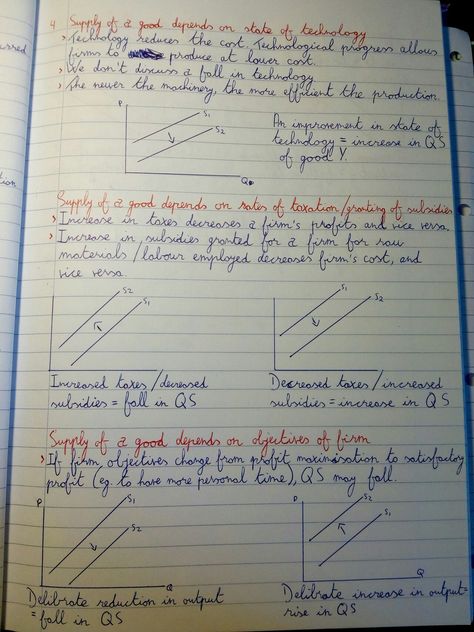 4 Supply of a good depends on state of technology
> Technology reduces the cost. Technological progress allows
firms to produce at lower cost.
> We don't discuss a fall in technology.
> The newer the machinery, the more efficient the production.
P
S1
S2
Q
An improvement in state of
technology = increase in QS
of good Y.
Supply of a good depends on rates of taxation/granting of subsidies
> Increase in taxes decreases a firm's profits and vice versa.
> Increase in subsidies granted for a firm for raw
materials / labour employed decreases firm's cost, and
vice versa.
S2
S1
S1
S2
Increased taxes/decreased
subsidies = fall in QS
Decreased taxes/increased
subsidies = increase in QS
Supply of a good depends on objectives of firm
> If firm objectives change from profit maximisation to satisfactory
profit (eg. to have more personal time), QS may fall.
P
S1
S2
Q
P
S2
S1
Q
Delibrate reduction in output
= fall in QS
Delibrate increase in output=
rise in QS